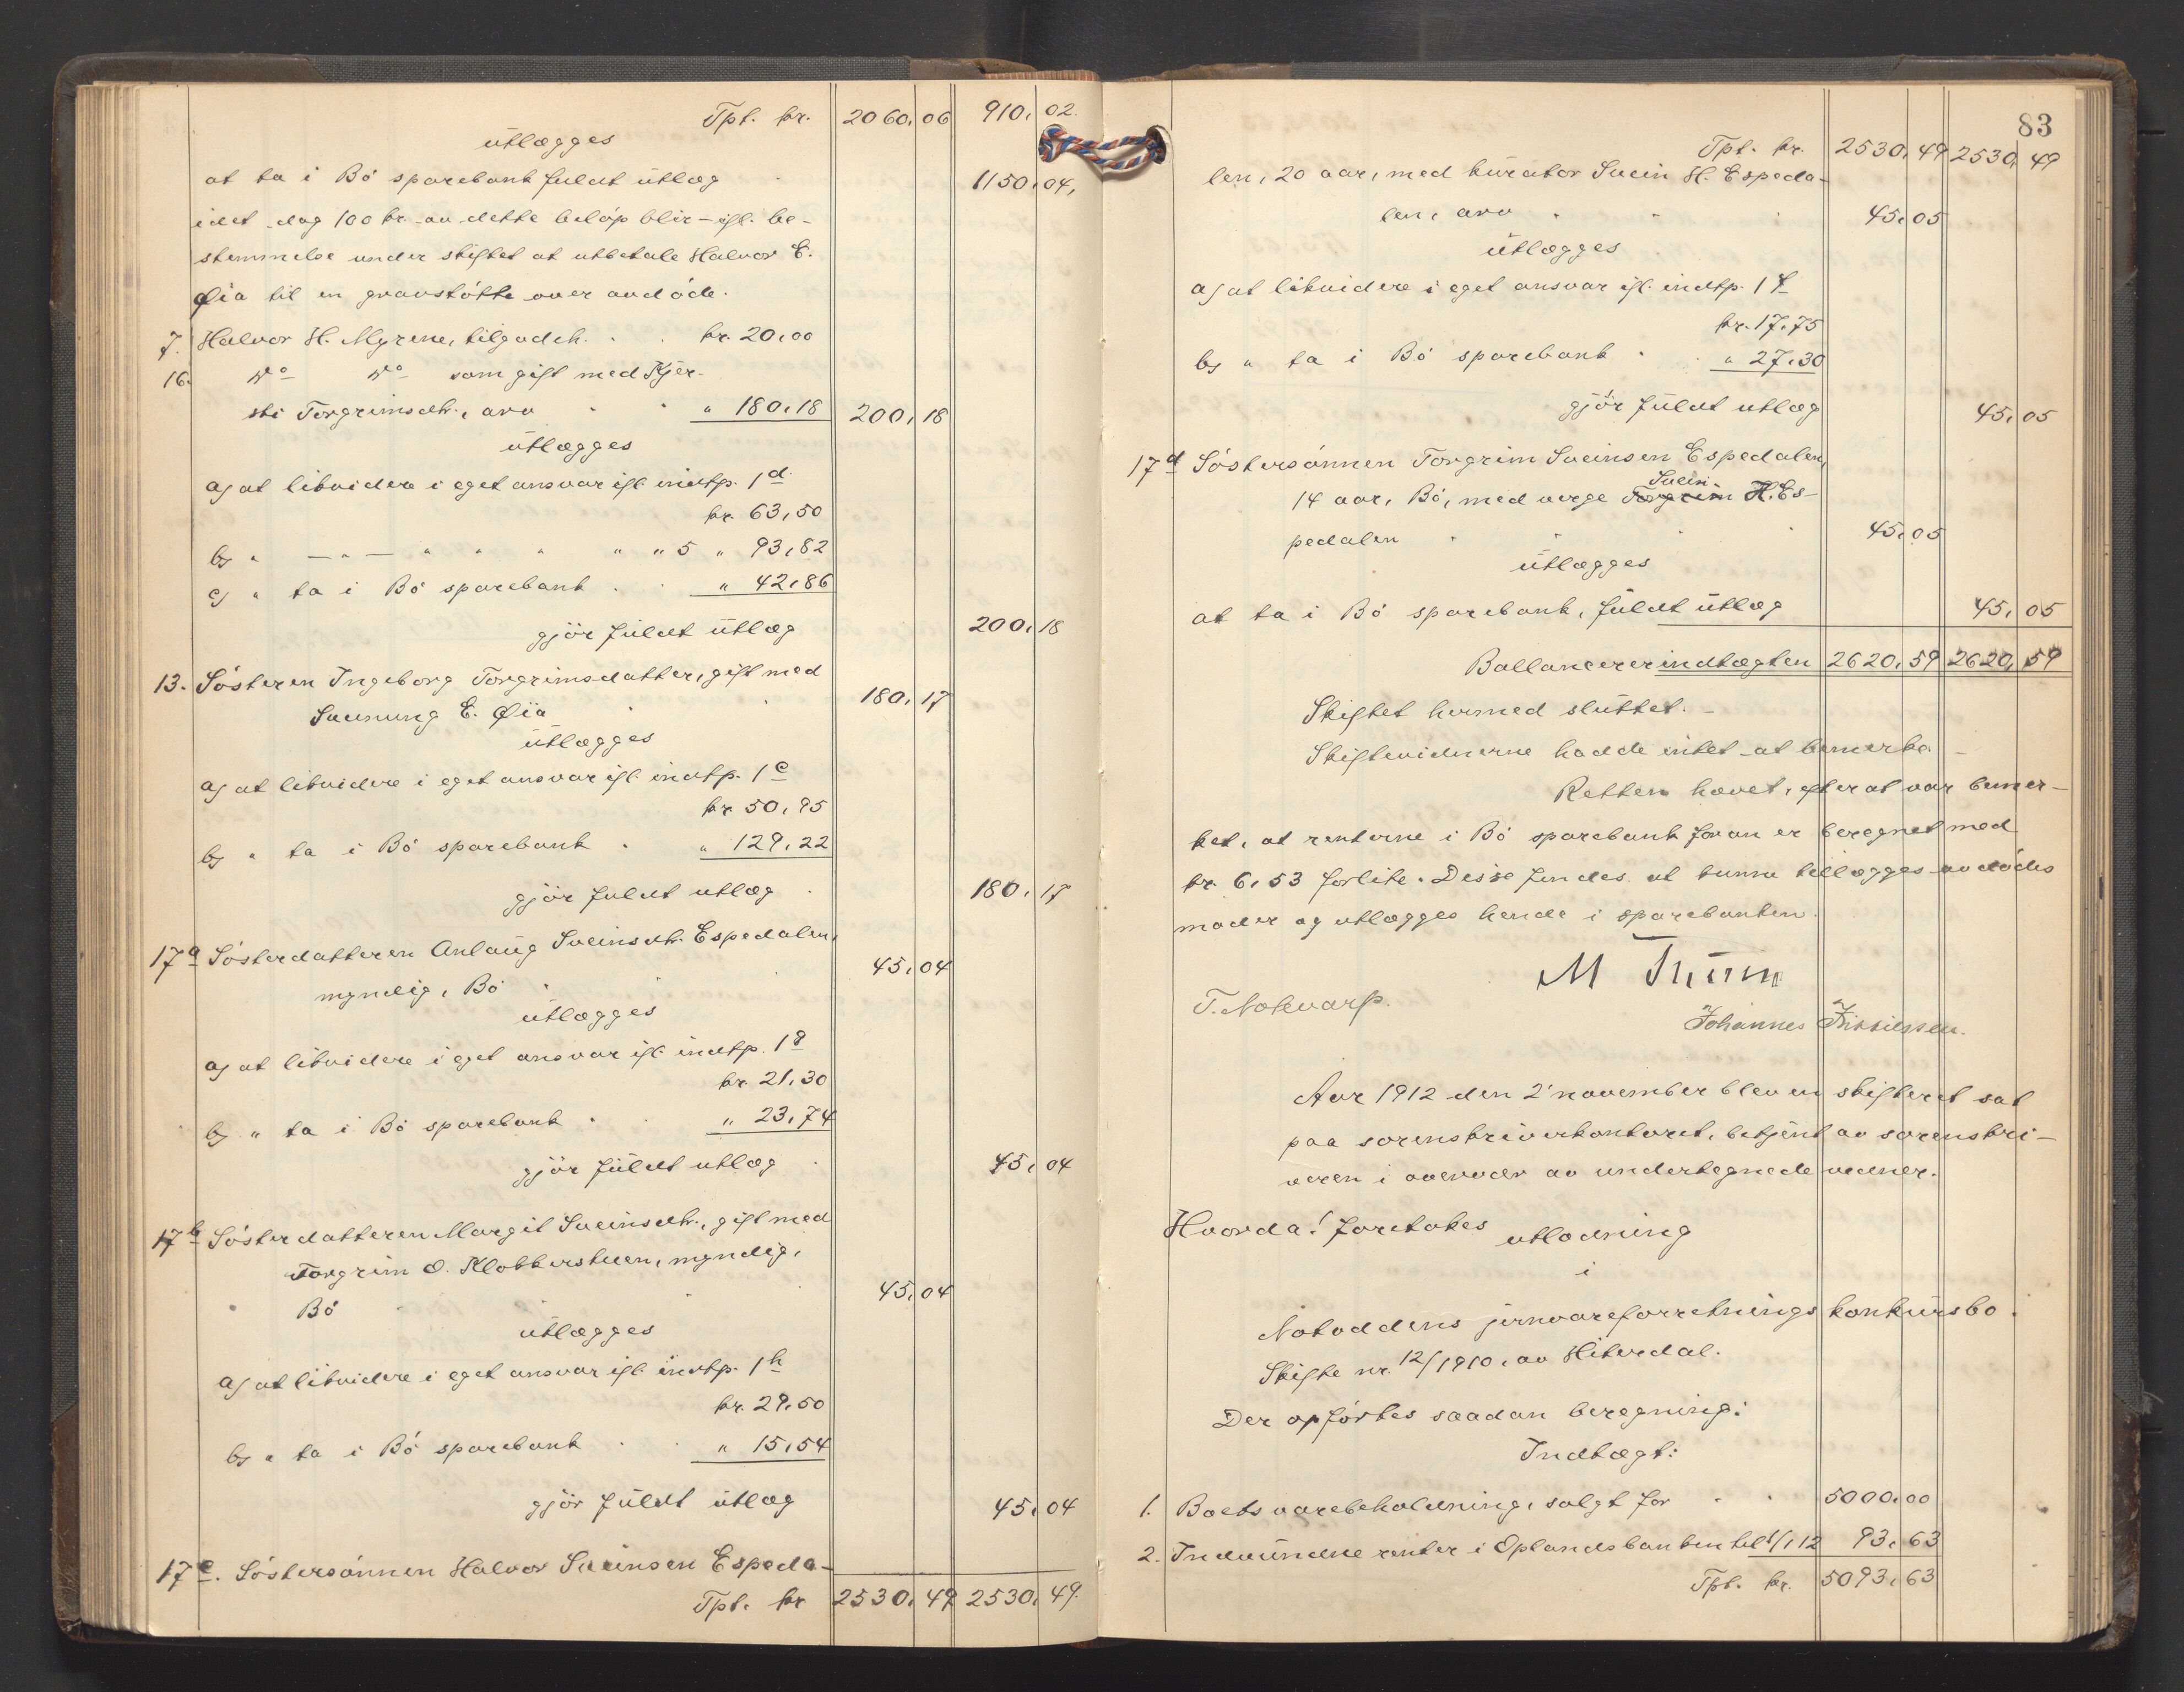 Tpt. kr. 2060,06 910,02.
utlægges
at ta i Bö sparebank fuldt utlæg 1150,04,
idet dog 100 kr. av dette belöp blir – ifl. be-
stemmelse under skiftet at utbetale Halvor E.
Øia til en gravstötte over avdöde.
7. Halvor H. Myrene, tilgodeh. . . kr. 20,00
16. do do som gift med Kjer-
sti Torgrimsdtr., arv . . " 180,18 200,18
utlægges
a) at likvidere i eget ansvar ifl. indtp. 1d
kr. 63,50
b) " — " — " " " " " 5 " 93,82
c) " ta i Bö sparebank . . " 42,86
gjör fuldt utlæg 200,18
13. Sösteren Ingeborg Torgrimsdatter, gift med
Svenung E. Øia . . 180,17
utlægges
a) at likvidere i eget ansvar ifl. indtp. 1e
kr. 50,95
b) " ta i Bö sparebank . " 129,22
gjör fuldt utlæg . 180,17
17a Sösterdatteren Anlaug Sveinsdtr. Espedalen,
myndig, Bö . . 45,04
utlægges
a) at likvidere i eget ansvar ifl. indtp. 1g
kr. 21,30
b) " ta i Bö sparebank . . " 23,74
gjör fuldt utlæg . 45,04
17b Sösterdatteren Margit Sveinsdtr., gift med
Torgrim O. Klobberstuen, myndig,
Bö . . 45,04
utlægges
a) at likvidere i eget ansvar ifl. indtp. 1h
kr. 29,50
b) " ta i Bö sparebank . . " 15,54
gjör fuldt utlæg 45,04
17c. Söstersönnen Halvor Sveinsen Espeda-
Tpt. kr 2530,49 2530,49.
83
Tpt. kr. 2530,49 2530,49
len, 20 aar, med kurator Svein H. Espeda-
len, arv . . . 45,05
utlægges
a) at likvidere i eget ansvar ifl. indtp. 1f
kr. 17,75
b) " ta i Bö sparebank . . " 27,30
gjör fuldt utlæg 45,05
17d Söstersönnen Torgrim Sveinsen Espedalen,
14 aar, Bö, med verge Torgrim Svein H. Es-
pedalen . . . 45,05
utlægges
at ta i Bö sparebank, fuldt utlæg 45,05
Ballancerer indtægten 2620,59 2620,59
Skiftet hermed sluttet. –
Skiftevidnerne hadde intet at bemerke. –
Retten hævet, efter at var bemer-
ket, at renterne i Bö sparebank foran er beregnet med
kr. 6,53 forlite. Disse findes at kunne tillægges avdödes
moder og utlægges hende i sparebanken.
M Thurm
T. Notevarp. Johannes
Aar 1912 den 2' november blev en skifteret sat
paa sorenskriverkontoret, betjent av sorenskri-
veren i overvær av undertegnede vidner.
Hvorda! foretokes utlodning
i
Notoddens jernvareforretnings konkursbo.
Skifte nr. 12/1910, av Hiterdal.
Der opförtes saadan beregning:
Indtægt:
1. Boets varebeholdning, solgt for . . 5000,00
2. Indvundne renter i Oplandsbanken til 1/1 12 93,63
Tpt. kr. 5093,63